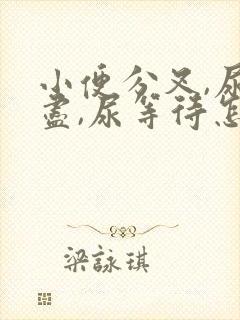 小便分叉,尿
盡,尿等待怎
梁詠琪